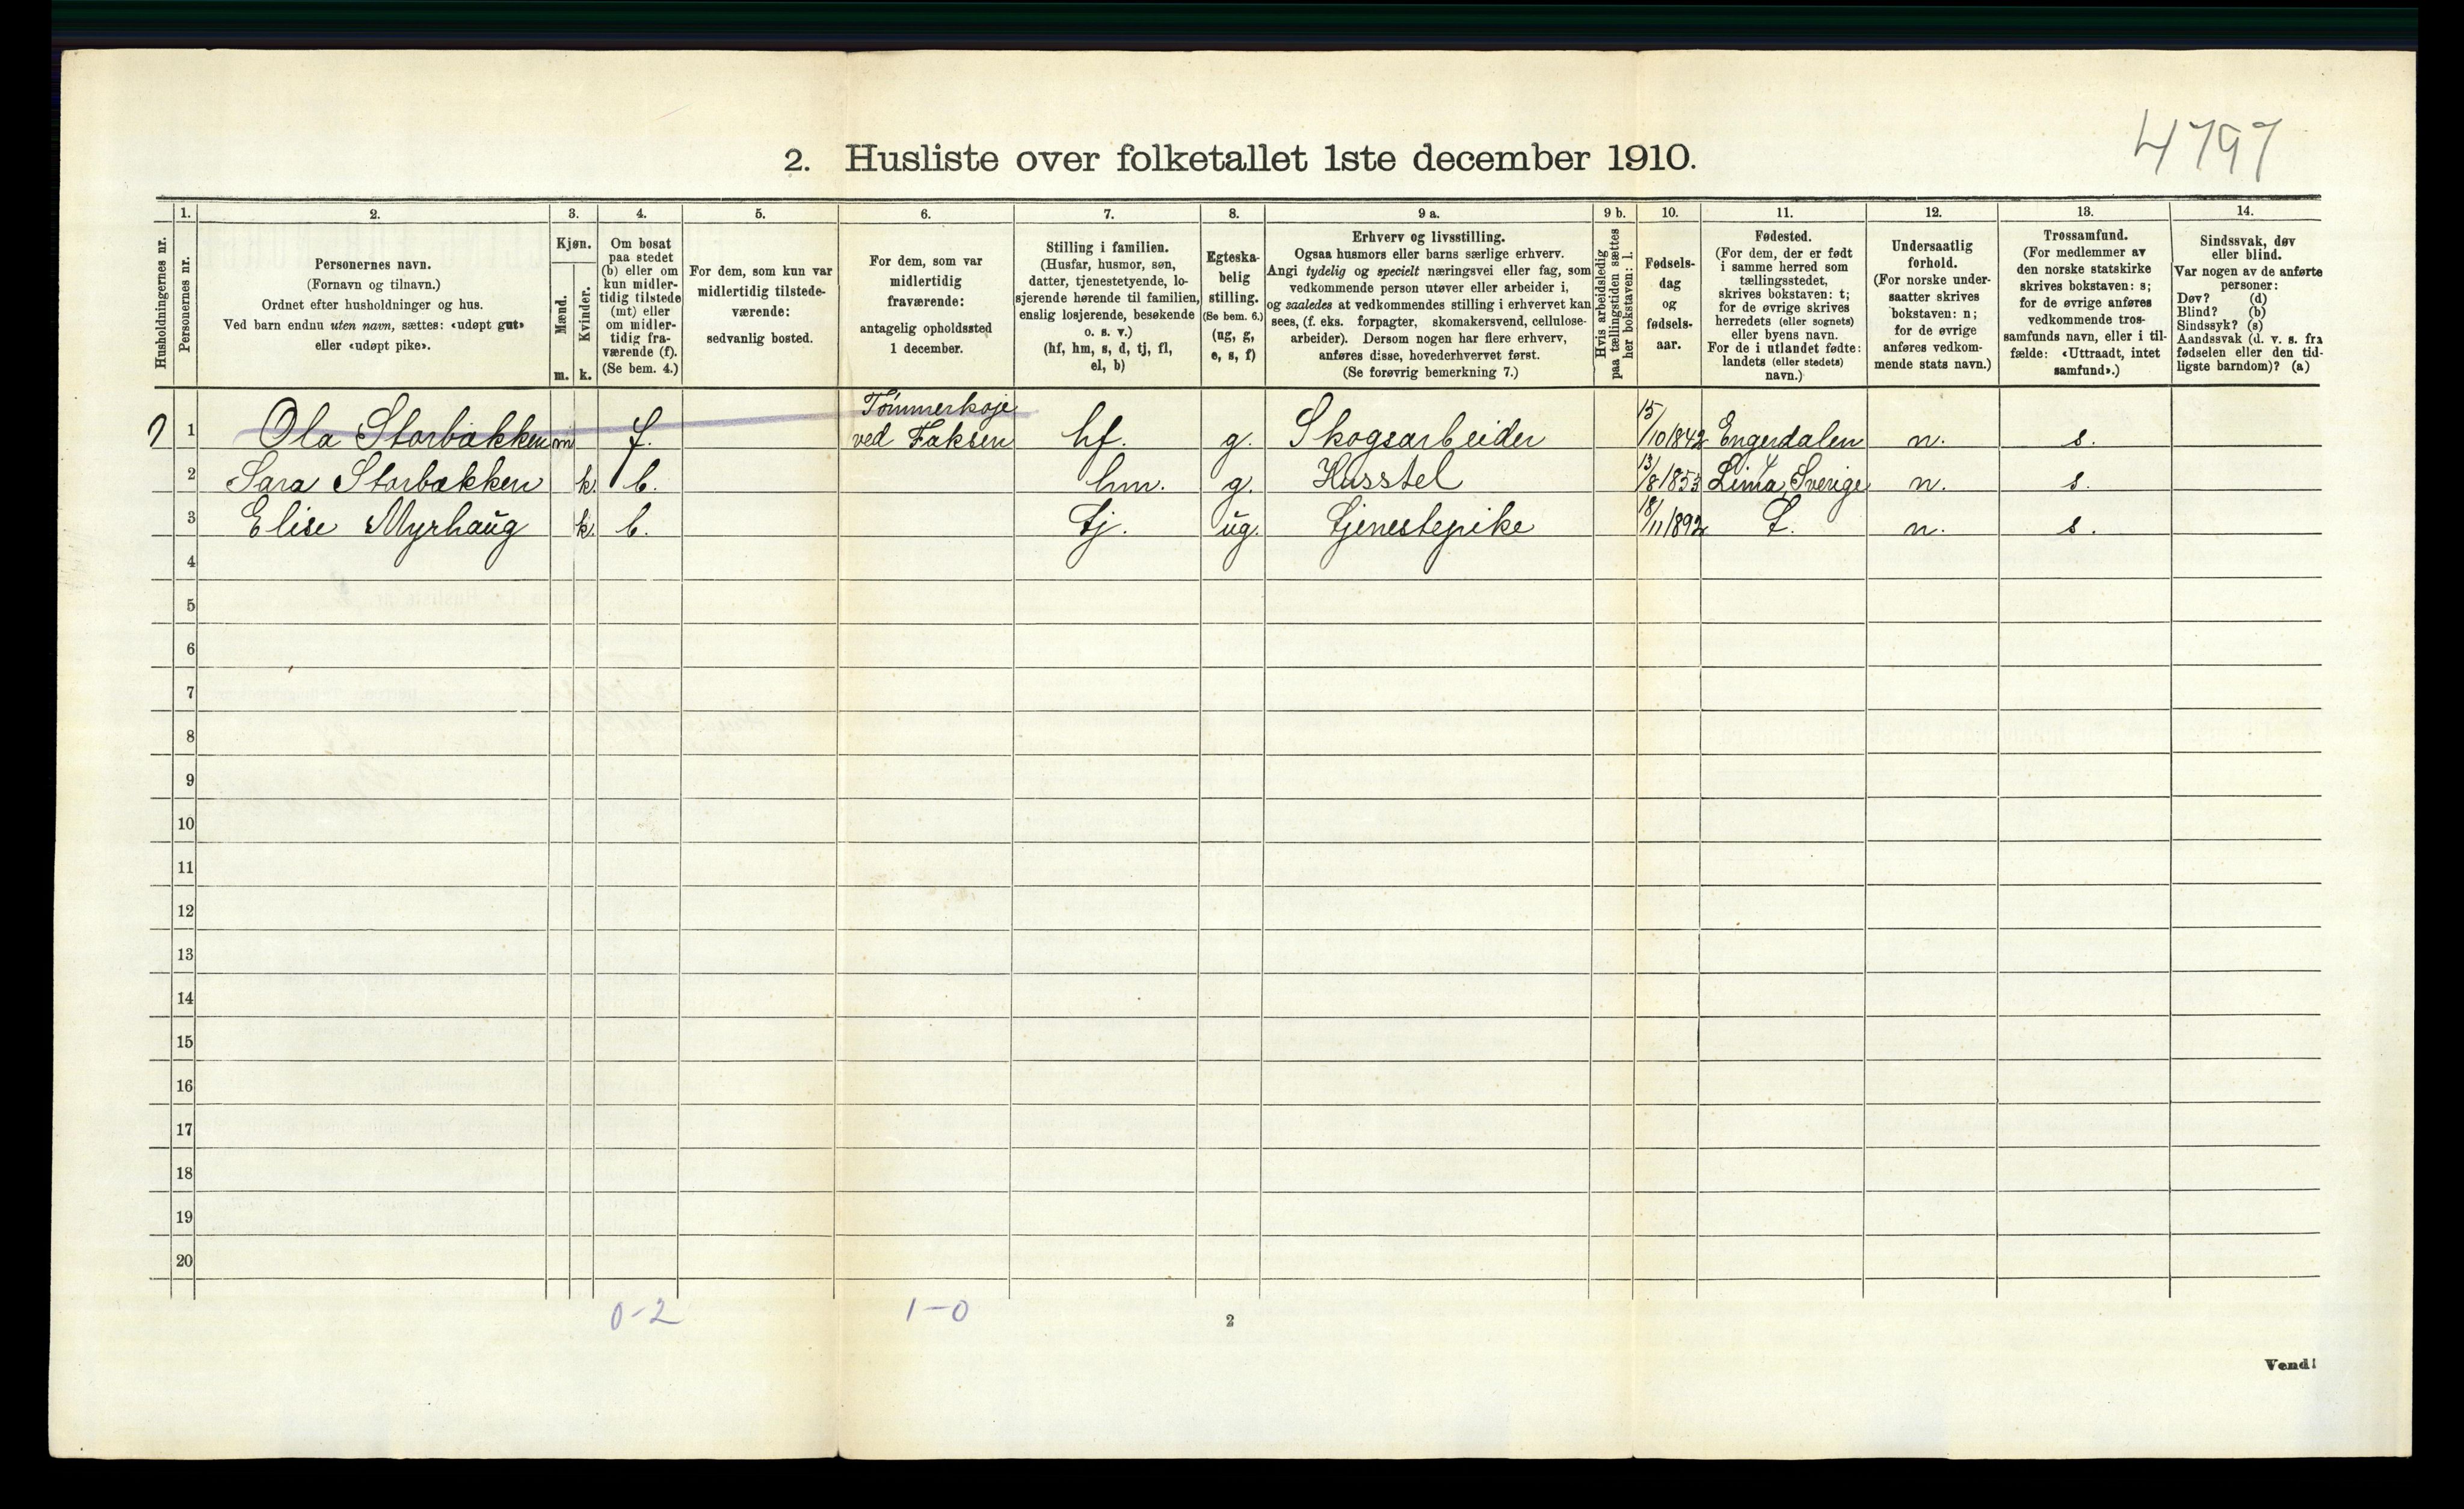 4797
2. Husliste over folketallet 1ste december 1910.
Husholdningernes nr.
1.
Personernes nr.
2.
Personernes navn.
(Fornavn og tilnavn.)
Ordnet efter husholdninger og hus.
Ved barn endnu uten navn, sættes: «udøpt gut»
eller «udøpt pike».
3.
Kjøn.
Mænd.
Kvinder.
m. k.
4.
Om bosat
paa stedet
(b) eller om
kun midler-
tidig tilstede
(mt) eller
om midler-
tidig fra-
værende (f).
(Se bem. 4.)
5.
For dem, som kun var
midlertidig tilstede-
værende:
sedvanlig bosted.
6.
For dem, som var
midlertidig
fraværende:
antagelig opholdssted
1 december.
7.
Stilling i familien.
(Husfar, husmor, søn,
datter, tjenestetyende, lo-
sjerende hørende til familien,
enslig losjerende, besøkende
o. s. v.)
(hf, hm, s, d, tj, fl,
el, b)
8.
Egteska-
belig
stilling.
(Se bem. 6.)
(ug, g,
e, s, f)
9 a.
Erhverv og livsstilling.
Ogsaa husmors eller barns særlige erhverv.
Angi tydelig og specielt næringsvei eller fag, som
vedkommende person utøver eller arbeider i,
og saaledes at vedkommendes stilling i erhvervet kan
sees, (f. eks. forpagter, skomakersvend, cellulose-
arbeider). Dersom nogen har flere erhverv,
anføres disse, hovederhvervet først.
(Se forøvrig bemerkning 7.)
9 b.
Hvis arbeidsledig
paa tællingstiden sættes
her bokstaven: l.
10.
Fødsels-
dag
og
fødsels-
aar.
11.
Fødested.
(For dem, der er født
i samme herred som
tællingsstedet,
skrives bokstaven: t;
for de øvrige skrives
herredets (eller sognets)
eller byens navn.
For de i utlandet fødte:
landets (eller stedets)
navn.)
12.
Undersaatlig
forhold.
(For norske under-
saatter skrives
bokstaven: n;
for de øvrige
anføres vedkom-
mende stats navn.)
13.
Trossamfund.
(For medlemmer av
den norske statskirke
skrives bokstaven: s;
for de øvrige anføres
vedkommende tros-
samfunds navn, eller i til-
fælde: «Uttraadt, intet
samfund».)
14.
Sindssvak, døv
eller blind.
Var nogen av de anførte
personer:
Døv? (d)
Blind? (b)
Sindssyk? (s)
Aandssvak (d. v. s. fra
fødselen eller den tid-
ligste barndom)? (a)
1 Ola Storbækken m f. Tømmerkoje ved Faksen hf. g. Skogsarbeider 15/10 1842 Engerdalen n. s.
2 Sara Storbækken k. b. hm. g. Husstel 13/8 1853 Lima, Sverige n. s.
3 Elise Myrhaug k. b. tj. ug. tjenestepike 18/11 1892 t. n. s.
4
5
6
7
8
9
10
11
12
13
14
15
16
17
18
19
20
0-2 1-0
2
Vend!